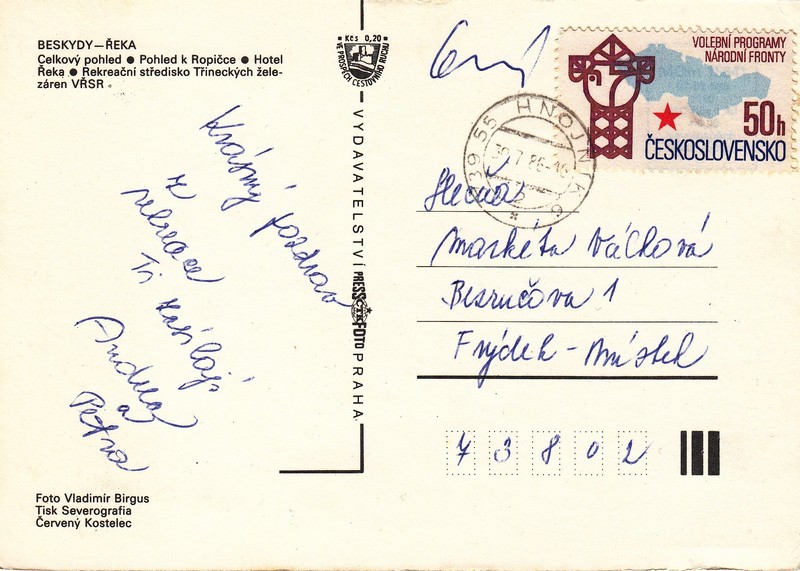 BESKYDY—ŘEKA
Celkový pohled ● Pohled k Ropičce ● Hotel
Řeka ● Rekreační středisko Třineckých žele-
záren VŘSR
Krásný pozdrav
z
rekreace
Ti zasílají
Andrea
a
Petra
Foto Vladimír Birgus
Tisk Severografia
Červený Kostelec
Kčs 0,20
VE PROSPĚCH CESTOVNÍHO RUCHU
VYDAVATELSTVÍ PRESSFOTO PRAHA
ČTK
VOLEBNÍ PROGRAMY
NÁRODNÍ FRONTY
50h
ČESKOSLOVENSKO
739 55 HNOJNÍK
Slečna
Markéta Váchová
Bezručova 1
Frýdek-Místek
73802